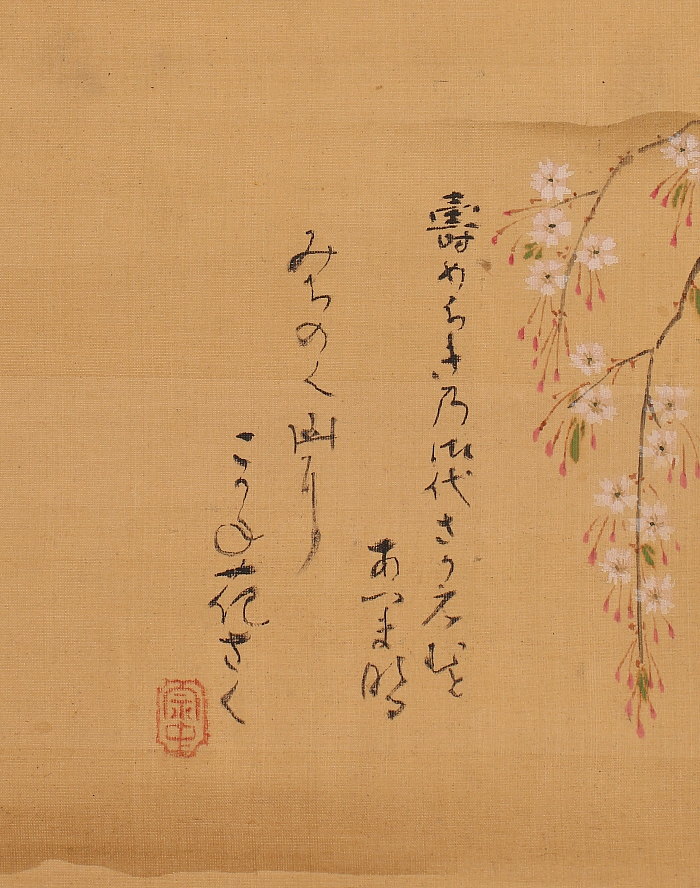 壽めろき乃御代さかえむと
あつま鳴
みちのく山耳
こかね花さく
宗中